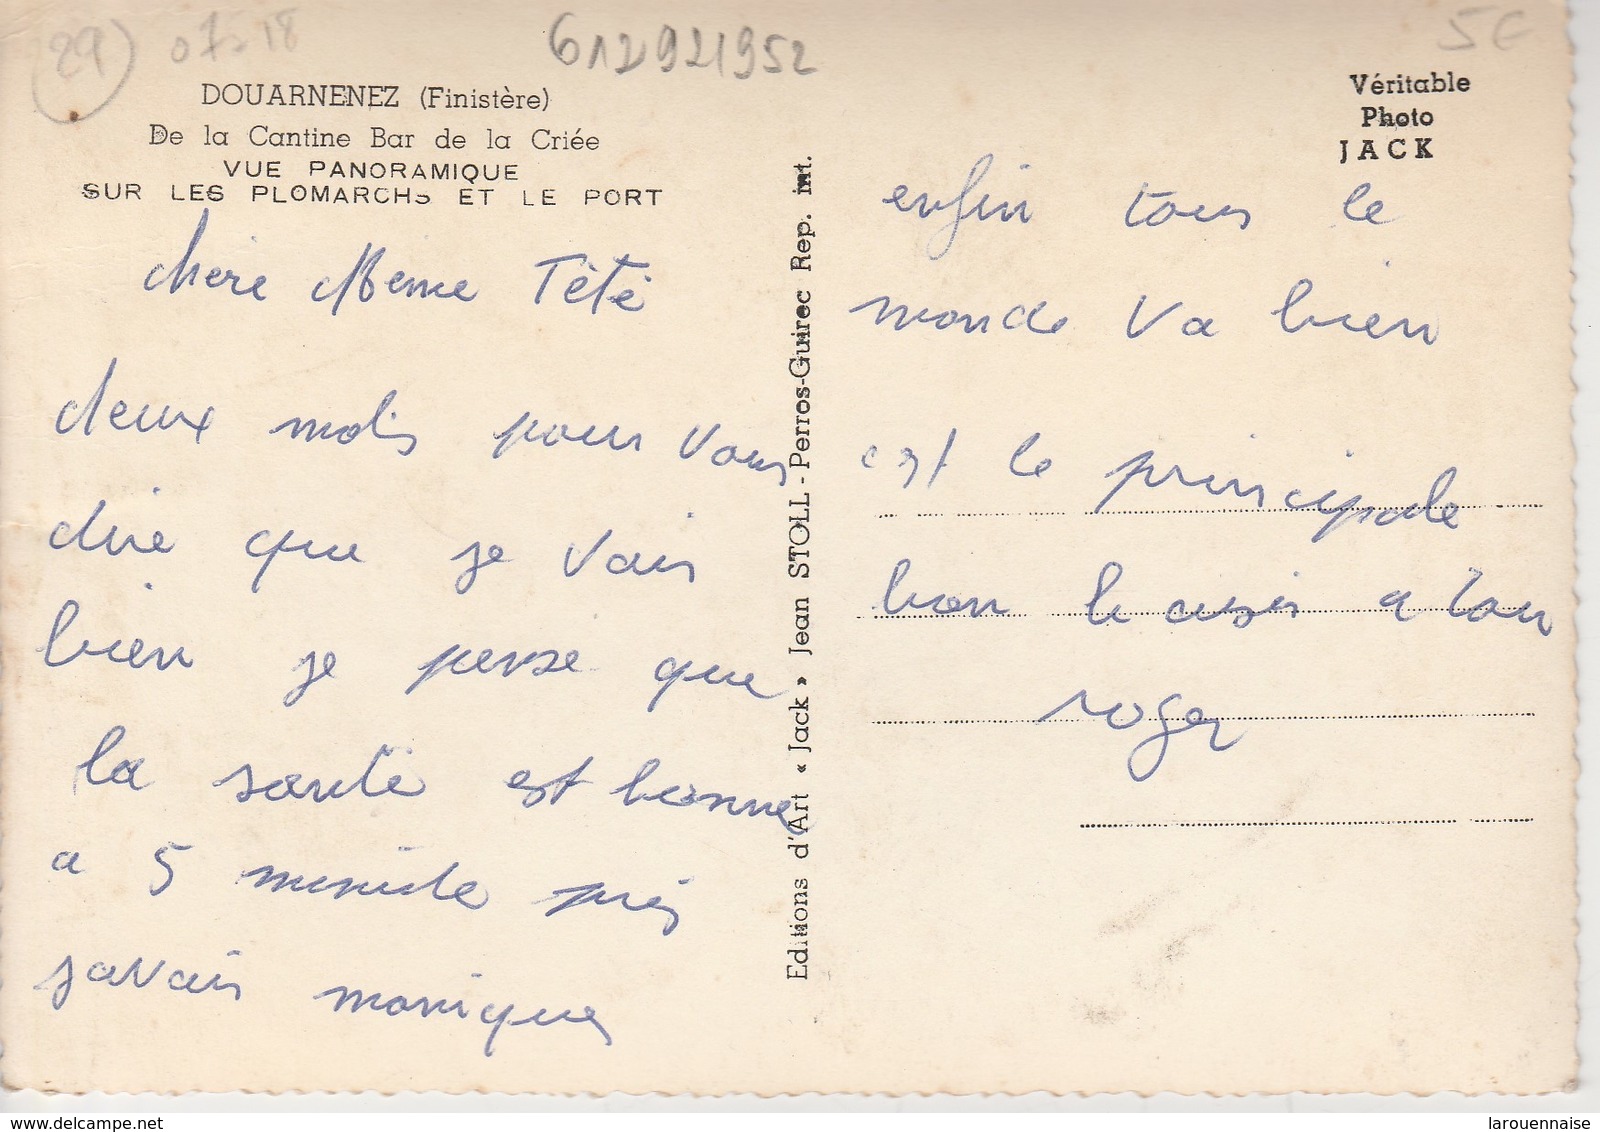 29
07-18
612921952
5€
DOUARNENEZ (Finistère)
De la Cantine Bar de la Criée
VUE PANORAMIQUE
SUR LES PLOMARCHS ET LE PORT
Véritable
Photo
JACK
chère Mémé Tété
deux mots pour vous
dire que je vais
bien je pense que
la santé est bonne
a 5 minute près
javais monique
Editions d'Art « Jack » Jean STOLL - Perros-Guirec Rep. int.
enfin tous le
monde va bien
est le principale
bon a tous
roger
www.delcampe.net
larouennaise